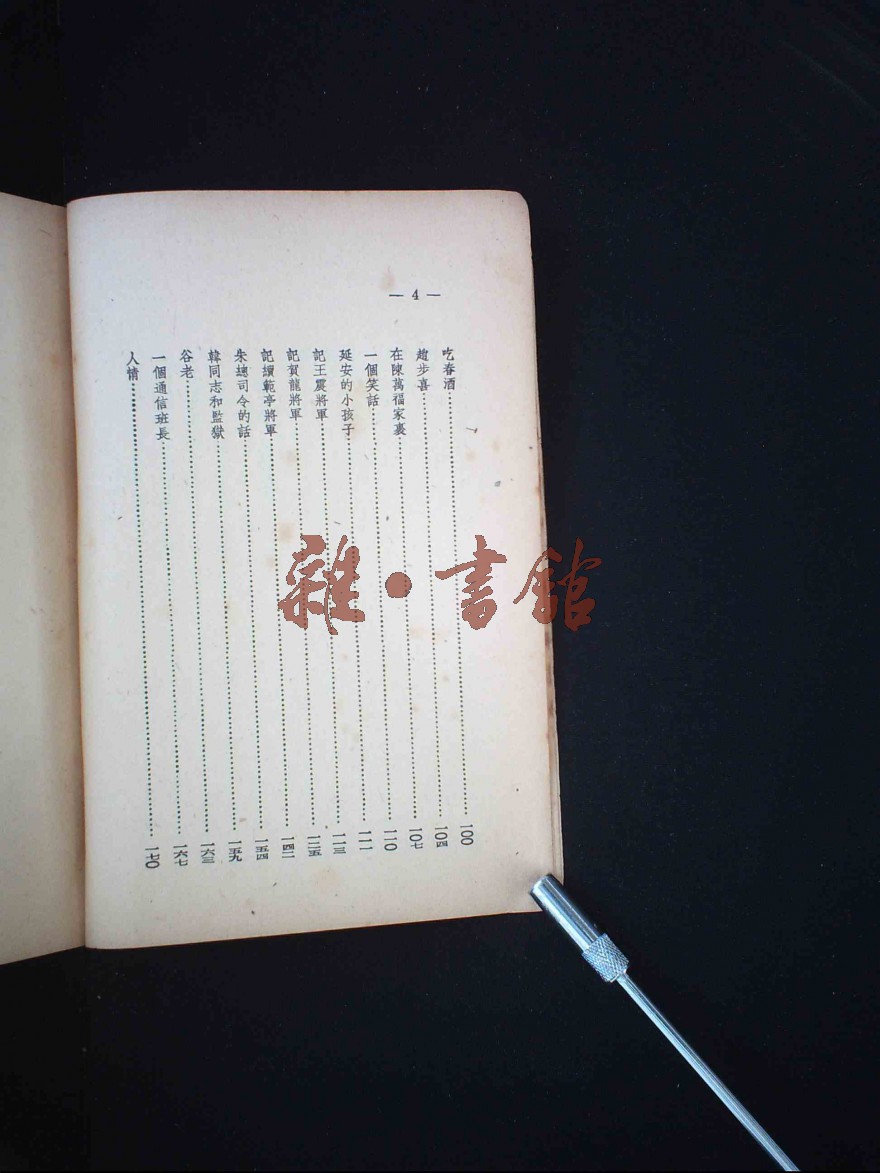 — 4 —
吃春酒……一〇〇
趙步喜……一〇四
在陳萬福家裏……一〇七
一個笑話……一一〇
延安的小孩子……一一一
記王震將軍……一一三
記賀龍將軍……一二五
記續範亭將軍……一四二
朱總司令的話……一五四
韓同志和監獄……一五九
谷老……一六三
一個通信班長……一六七
人情……一七〇
雜·書館